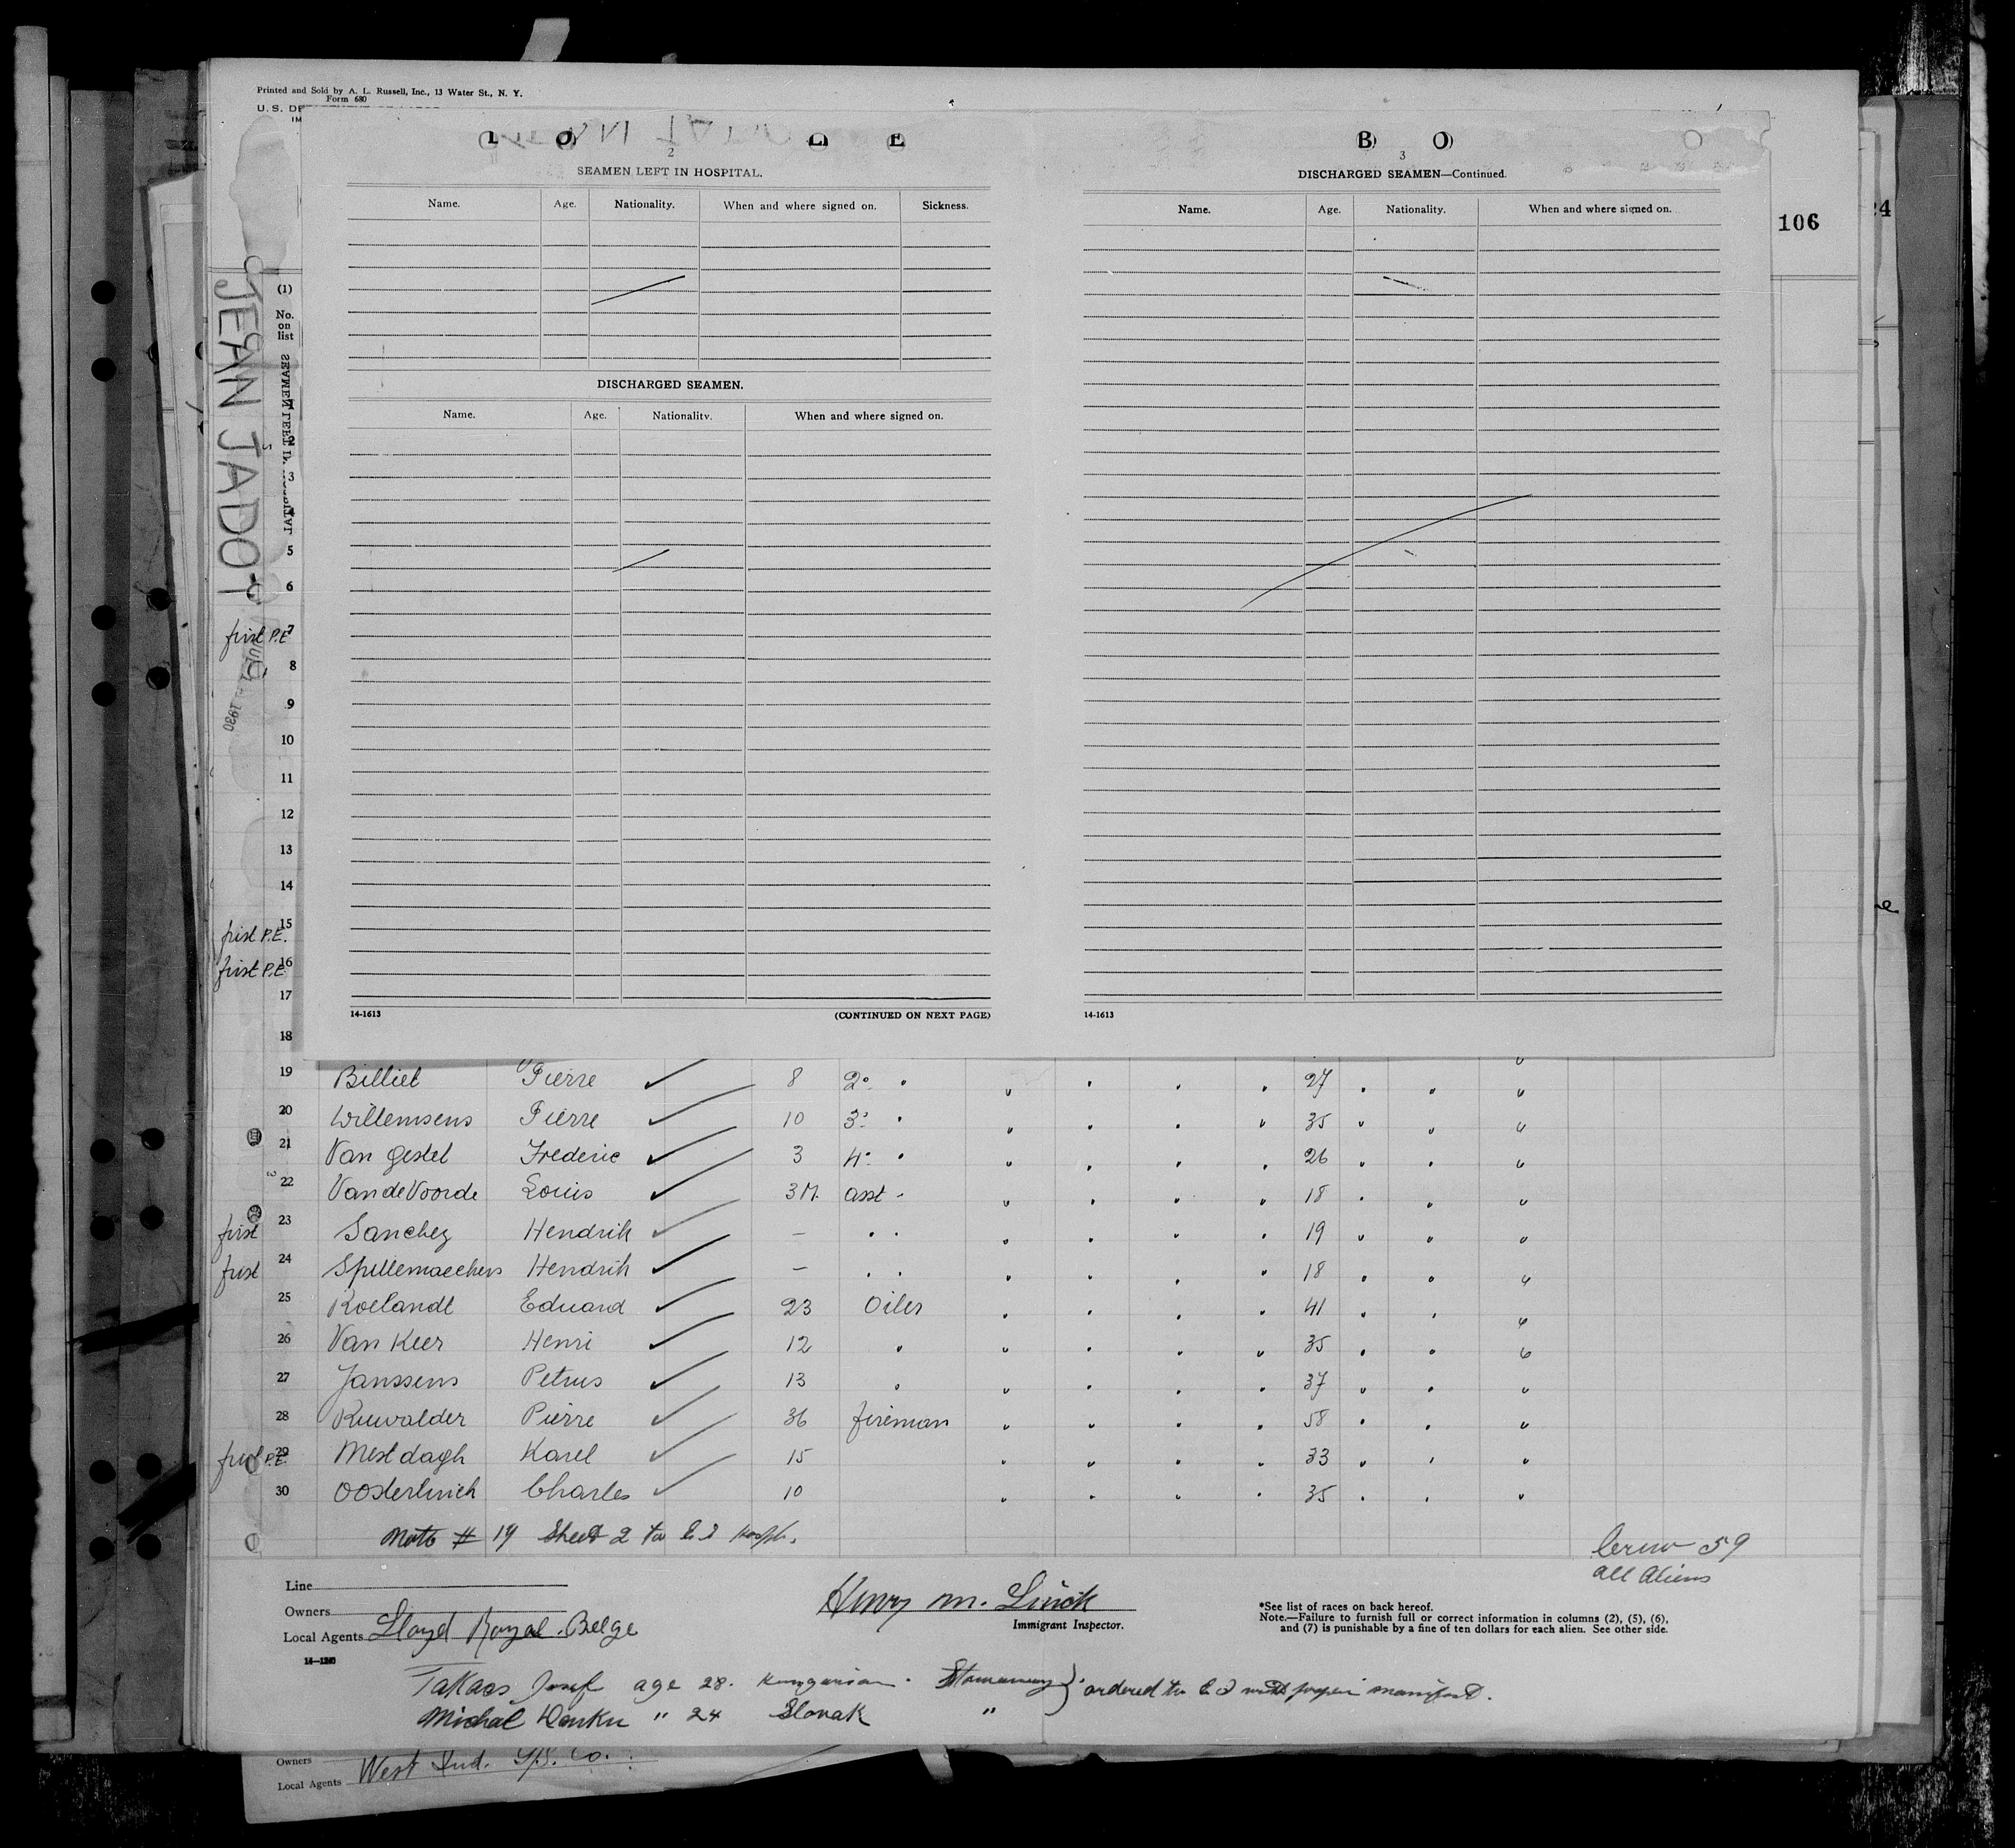 Printed and Sold by A. L. Russell, Inc., 13 Water St., N. Y.
Form 680
U. S. DE
IM
106
24
2
SEAMEN LEFT IN HOSPITAL.
Name. Age. Nationality. When and where signed on. Sickness.
DISCHARGED SEAMEN.
Name. Age. Nationality. When and where signed on.
14-1613 (CONTINUED ON NEXT PAGE)
B O
3
DISCHARGED SEAMEN—Continued.
Name. Age. Nationality. When and where signed on.
14-1613
JEAN JADOT
1930
(1)
No.
on
list
SEAMEN LEFT IN HOSPITAL
2
3
4
5
6
first P.E 7
8
9
10
11
12
13
14
first P.E. 15
first P.E 16
17
18
19 Billiet Pierre 8 2° " 27
20 Willemsens Pierre 10 3° " 35
21 Van Gestel Frederic 3 4° " 26
22 Van de Voorde Louis 3M. asst " 18
first 23 Sanchez Hendrik — " " 19
first 24 Spillemaeckers Hendrik — " " 18
25 Roelandt Eduard 23 Oiler 41
26 Van Keer Henri 12 " 35
27 Janssens Petrus 13 " 37
28 Ruwalder Pierre 36 fireman 58
first P.E. 29 Mestdagh Karel 15 33
30 Oosterlinck Charles 10 35
Note # 19 Sheet 2 to E I Hosp.
Crew 59
all Aliens
Line
Owners
Local Agents Lloyd Royal Belge
14-1240
Henry M. Linck
Immigrant Inspector.
*See list of races on back hereof.
Note.—Failure to furnish full or correct information in columns (2), (5), (6),
and (7) is punishable by a fine of ten dollars for each alien. See other side.
Takacs Josef age 28. Hungarian. Stowaway } ordered to E I with proper manifest.
Michal " 24 Slovak "
Owners
Local Agents West Ind. S/S. Co.